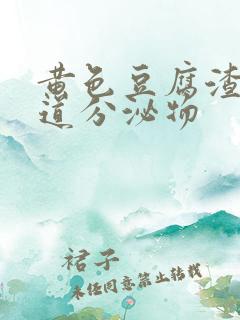 黄色豆腐渣
道分泌物
裙子
未经同意禁止转载